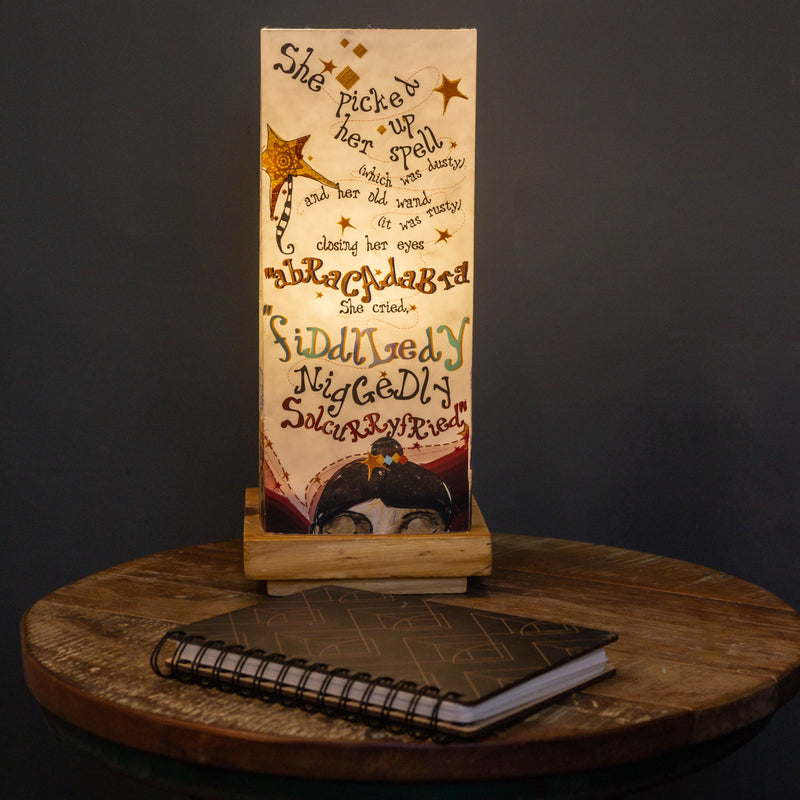 She picked
her up
spell
(which was dusty)
and her old wand
(it was rusty)
closing her eyes
"abRacAdaBra
She cried,
"fiDdlLedy
NigGeDly
SolcuRRyfRied"